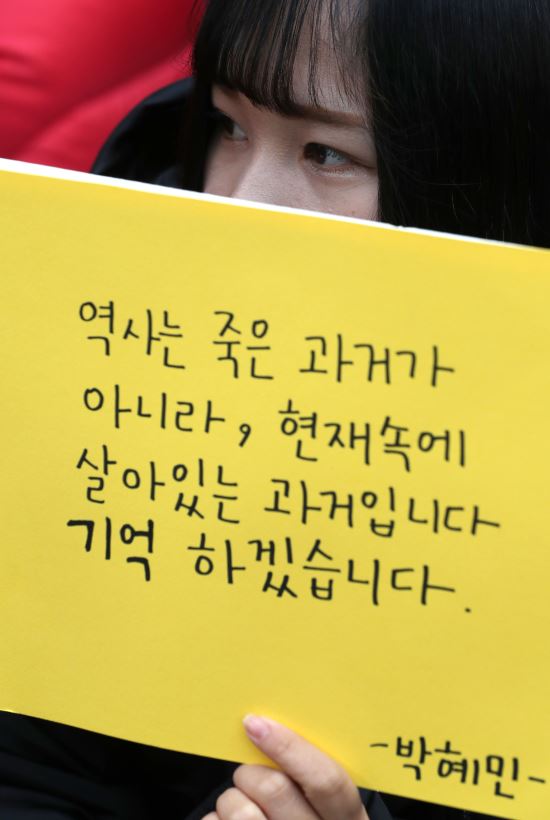 역사는 죽은 과거가
아니라, 현재속에
살아있는 과거입니다
기억 하겠습니다.
-박혜민-